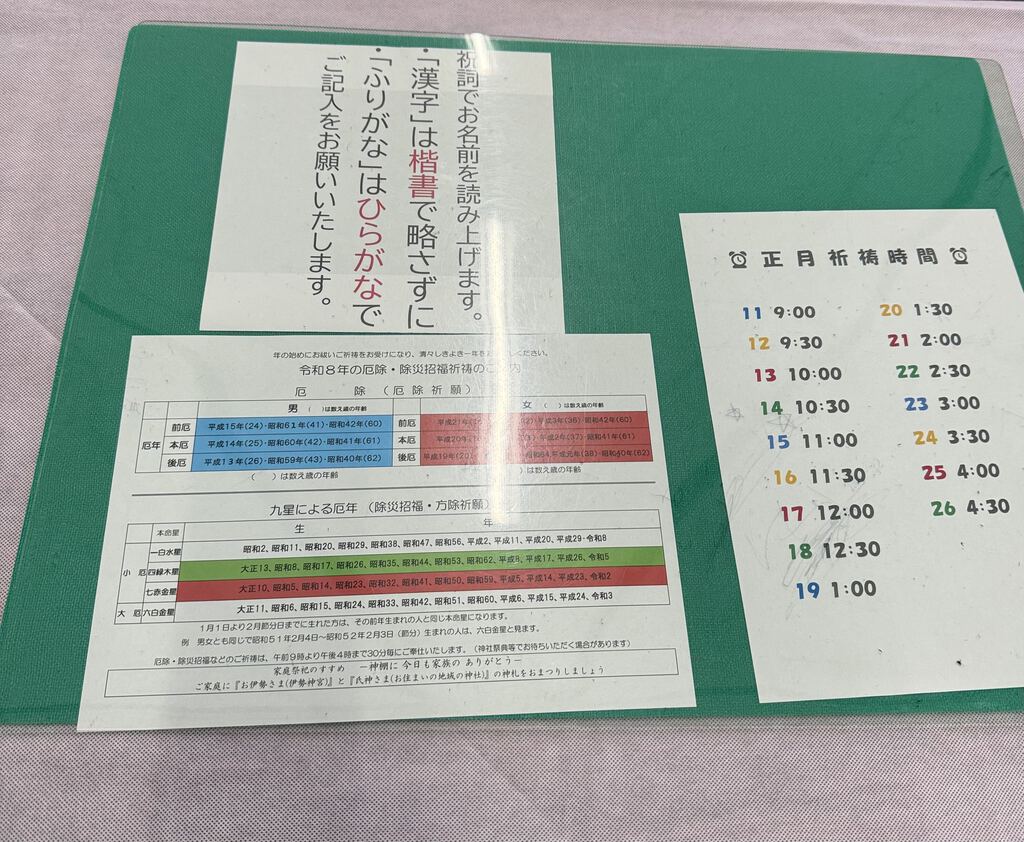 祝詞でお名前を読み上げます。
・「漢字」は楷書で略さずに
・「ふりがな」はひらがなで
ご記入をお願いいたします。
年の始めにお祓いご祈祷をお受けになり、清々しきよき一年を
ください。
令和8年の厄除・除災招福祈祷のご 内
厄 除 (厄除祈願)
男 ( )は数え歳の年齢
女 ( )は数え歳の年齢
厄年
前厄 平成15年(24)・昭和61年(41)・昭和42年(60)
前厄 平成21年 ・平成3年(36)・昭和42年(60)
本厄 平成14年(25)・昭和60年(42)・昭和41年(61)
本厄 平成20年 ・平成2年(37)・昭和41年(61)
後厄 平成13年(26)・昭和59年(43)・昭和40年(62)
後厄 平成19年(20) 昭和64,平成元年(38)・昭和40年(62)
( )は数え歳の年齢
)は数え歳の年齢
九星による厄年 (除災招福・方除祈願)
本命星 生 年
小厄 一白水星 昭和2、昭和11、昭和20、昭和29、昭和38、昭和47、昭和56、平成2、平成11、平成20、平成29、令和8
四緑木星 大正13、昭和8、昭和17、昭和26、昭和35、昭和44、昭和53、昭和62、平成8、平成17、平成26、令和5
七赤金星 大正10、昭和5、昭和14、昭和23、昭和32、昭和41、昭和50、昭和59、平成5、平成14、平成23、令和2
大厄 六白金星 大正11、昭和6、昭和15、昭和24、昭和33、昭和42、昭和51、昭和60、平成6、平成15、平成24、令和3
1月1日より2月節分日までに生れた方は、その前年生まれの人と同じ本命星になります。
例 男女とも同じで昭和51年2月4日～昭和52年2月3日(節分)生まれの人は、六白金星と見ます。
厄除・除災招福などのご祈祷は、午前9時より午後4時まで30分毎にご奉仕いたします。(神社祭典等でお待ちいただく場合があります)
家庭祭祀のすすめ ―神棚に 今日も家族の ありがとう―
ご家庭に『お伊勢さま(伊勢神宮)』と『氏神さま(お住まいの地域の神社)』の神札をおまつりしましょう
正月祈祷時間
11 9:00
12 9:30
13 10:00
14 10:30
15 11:00
16 11:30
17 12:00
18 12:30
19 1:00
20 1:30
21 2:00
22 2:30
23 3:00
24 3:30
25 4:00
26 4:30